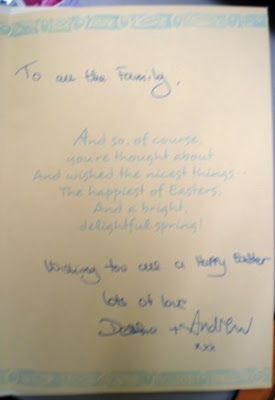 To all the Family,
And so, of course,
you're thought about
And wished the nicest things--
The happiest of Easters,
And a bright,
delightful spring!
Wishing you all a Happy Easter
lots of love
+ Andrew
xxx